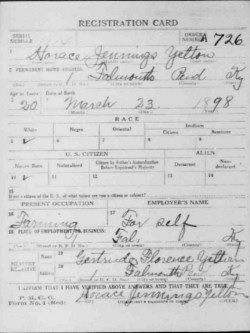 REGISTRATION CARD
SERIAL NUMBER
ORDER NUMBER A 726
Horace Jennings Yelton
2 PERMANENT HOME ADDRESS:
Falmouth Pend Ky
Age in Years
Date of Birth
20 March 23 1898
RACE
White
Negro
Oriental
Indian
Citizen
Noncitizen
5 ✓
U. S. CITIZEN
ALIEN
Native Born
Naturalized
Citizen by Father's Naturalization Before Registrant's Majority
10 ✓
If not a citizen of the U. S., of what nation are you a citizen or subject?
PRESENT OCCUPATION
EMPLOYER'S NAME
Farming
For self
PLACE OF EMPLOYMENT OR BUSINESS:
Fal Ky
NEAREST RELATIVE
Gertrude Florence Yelton
Falmouth Ky
I AFFIRM THAT I HAVE VERIFIED ABOVE ANSWERS AND THAT THEY ARE TRUE
P. M. G. O.
Form No. 1 (Red)
Horace Jennings Yelton